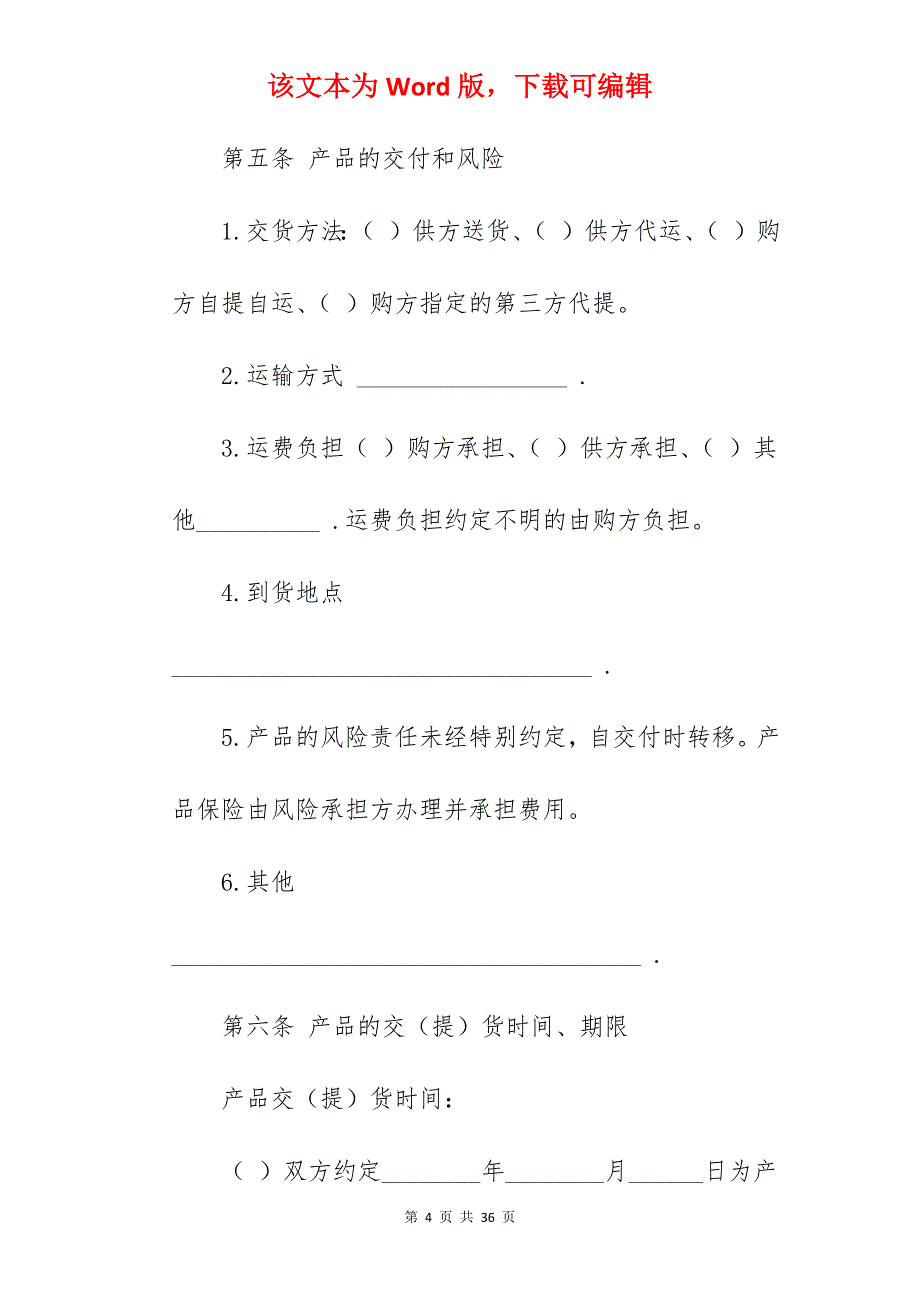 该文本为 Word 版，下载可编辑
第五条 产品的交付和风险
1.交货方法:（ ）供方送货、（ ）供方代运、（ ）购
方自提自运、（ ）购方指定的第三方代提。
2.运输方式 _________________ .
3.运费负担（ ）购方承担、（ ）供方承担、（ ）其
他__________ .运费负担约定不明的由购方负担。
4.到货地点
__________________________________ .
5.产品的风险责任未经特别约定，自交付时转移。产
品保险由风险承担方办理并承担费用。
6.其他
______________________________________ .
第六条 产品的交（提）货时间、期限
产品交（提）货时间：
（ ）双方约定________年________月______日为产
第 4 页 共 36 页